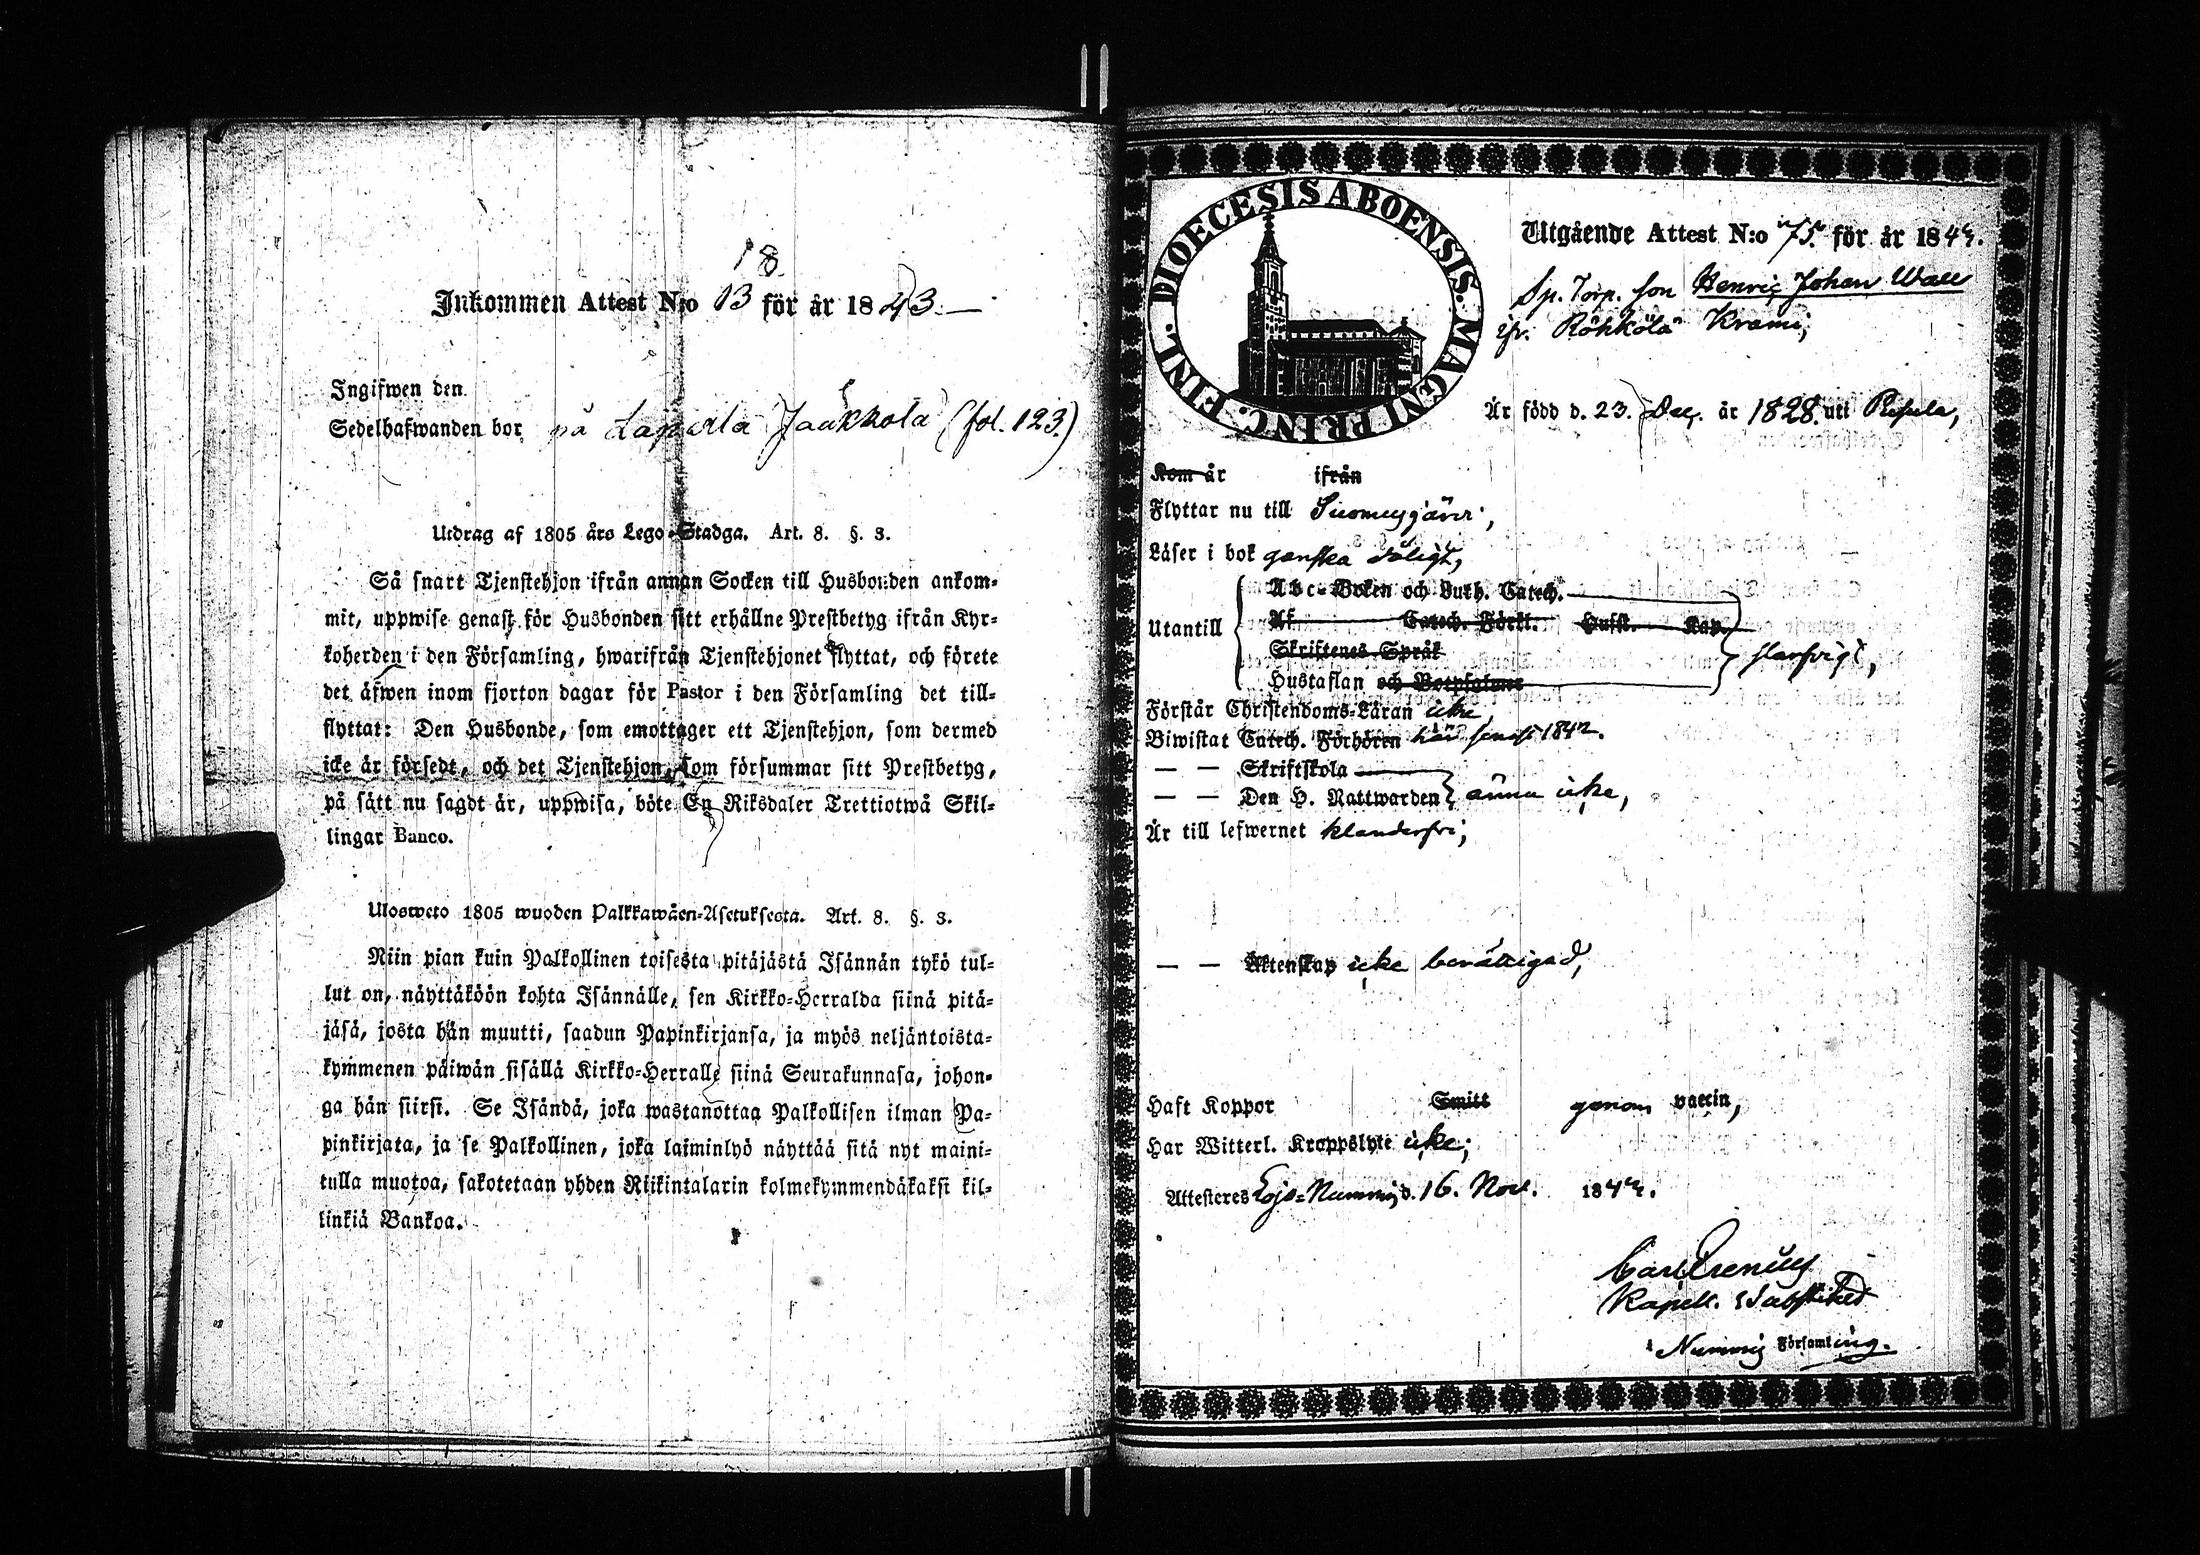 18
Inkommen Attest N:o 13 för år 1843.
Ingifwen den
Sedelhafwanden bor på Jaakkola (fol. 123.)
Utdrag af 1805 års Lego-Stadga. Art. 8. §. 3.
Så snart Tjenstehjon ifrån annan Socken till Husbonden ankom-
mit, uppwise genast för Husbonden sitt erhållne Prestbetyg ifrån Kyr-
koherden i den Församling, hwarifrån Tjenstehjonet flyttat, och förete
det äfwen inom fjorton dagar för Pastor i den Församling det till-
flyttat: Den Husbonde, som emottager ett Tjenstehjon, som dermed
icke är försedt, och det Tjenstehjon, som försummar sitt Prestbetyg,
på sätt nu sagdt är, uppwisa, böte En Riksdaler Trettiotwå Skil-
lingar Banco.
Ulosweto 1805 wuoden Palkkawäen-Asetuksesta. Art. 8. §. 3.
Niin pian kuin Palkollinen toisesta pitäjästä Isännän tykö tul-
lut on, näyttäköön kohta Isännälle, sen Kirkko-Herralda siinä pitä-
jäsä, josta hän muutti, saadun Papinkirjansa, ja myös neljäntoista-
kymmenen päiwän sisällä Kirkko-Herralle siinä Seurakunnasa, johon-
ga hän siirsi. Se Isändä, joka wastanottaa Palkollisen ilman Pa-
pinkirjata, ja se Palkollinen, joka laiminlyö näyttää sitä nyt maini-
tulla muotoa, sakotetaan yhden Riikintalarin kolmekymmendäkaksi kil-
linkiä Bankoa.
DIOECESIS ABOENSIS. MAGNI PRINC. FINL.
Utgående Attest N:o 75. för år 1842.
Sp. Torp. son Henric Johan Wall
ifr. Röhkölä Krami,
Är född d. 23. Dec. år 1828. uti Pusula,
Kom år ifrån
Flyttar nu till Suomusjärvi,
Läser i bok ganska dåligt,
Abc-Boken och Luth. Catech.
Af Catech. Förkl. Hufst. Kap.
Utantill
Skriftenes Språk slarfvigt,
Hustaflan och Botpsalmer
Förstår Christendoms-Läran icke,
Biwistat Catech. Förhören här senast 1842.
— — Skriftskola
— — Den H. Nattwarden ännu icke,
Är till lefwernet klanderfri,
— — Äktenskap icke berättigad,
Haft Koppor Smitt genom vaccin,
Har Witterl. Kroppslyte icke;
Attesteres Lojo-Nummis d. 16. Nov. 1842.
Carl
Kapell. Substitut
i Nummis Församling.